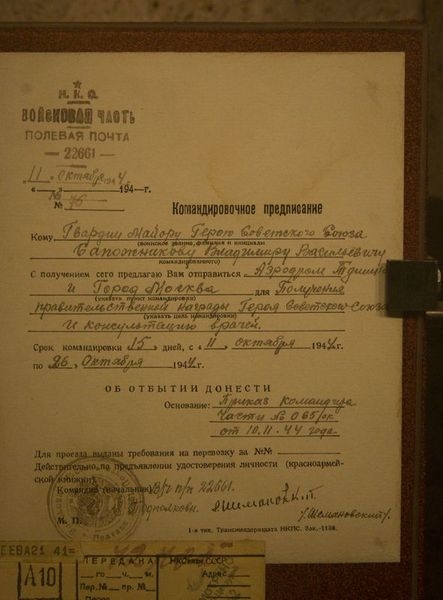 Н.К.О.
ВОЙСКОВАЯ ЧАСТЬ
ПОЛЕВАЯ ПОЧТА
— 22661 —
„11 Октября 1944
„—“ 194—г.
№
№ 76
Командировочное предписание
Кому Гвардии Майору Герою Советского Союза
(воинское звание, фамилия и инициалы
Сапожникову Владимиру Васильевичу
командированного)
С получением сего предлагаю Вам отправиться Аэродром
и Город Москва для Получения
(указать пункт командировки)
правительственной награды Героя Советского Союза
(указать цель командировки)
и консультацию врачей.
Срок командировки 15 дней, с 11 октября 1944
по 26 Октября 1944 г.
ОБ ОТБЫТИИ ДОНЕСТИ
Основание: Приказ командира
Части № 065/ок
от 10.11.44 года
Для проезда выданы требования на перевозку за №№
Действительно по предъявлении удостоверения личности (красноармей-
ской книжки).
Командир (начальник) в/ч п/п 22661.
Подполковн.
М. П. /Шемановский/.
1-я тип. Трансжелдориздата НКПС. Зак. 1138.
41=
А10
ПЕРЕДАЧА
го ч. м.
Пер.№ пр.№
СССР
Адрес: